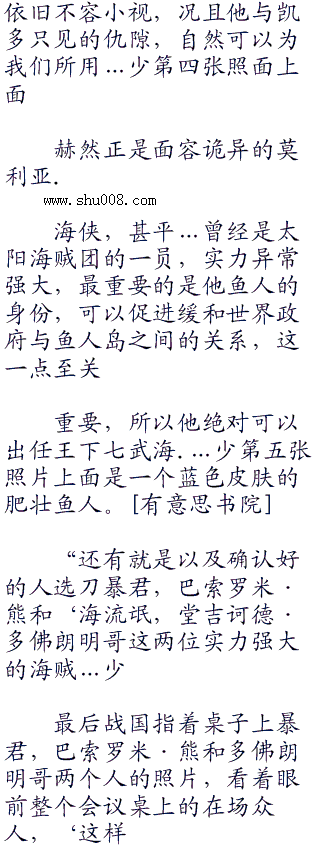 依旧不容小视，况且他与凯
多只见的仇隙，自然可以为
我们所用…少第四张照面上
面
赫然正是面容诡异的莫
利亚.
www.shu008.com
海侠，甚平…曾经是太
阳海贼团的一员，实力异常
强大，最重要的是他鱼人的
身份，可以促进缓和世界政
府与鱼人岛之间的关系，这
一点至关
重要，所以他绝对可以
出任王下七武海.…少第五张
照片上面是一个蓝色皮肤的
肥壮鱼人。[有意思书院]
“还有就是以及确认好
的人选刀暴君，巴索罗米·
熊和‘海流氓，堂吉诃德·
多佛朗明哥这两位实力强大
的海贼…少
最后战国指着桌子上暴
君，巴索罗米·熊和多佛朗
明哥两个人的照片，看着眼
前整个会议桌上的在场众
人，‘这样